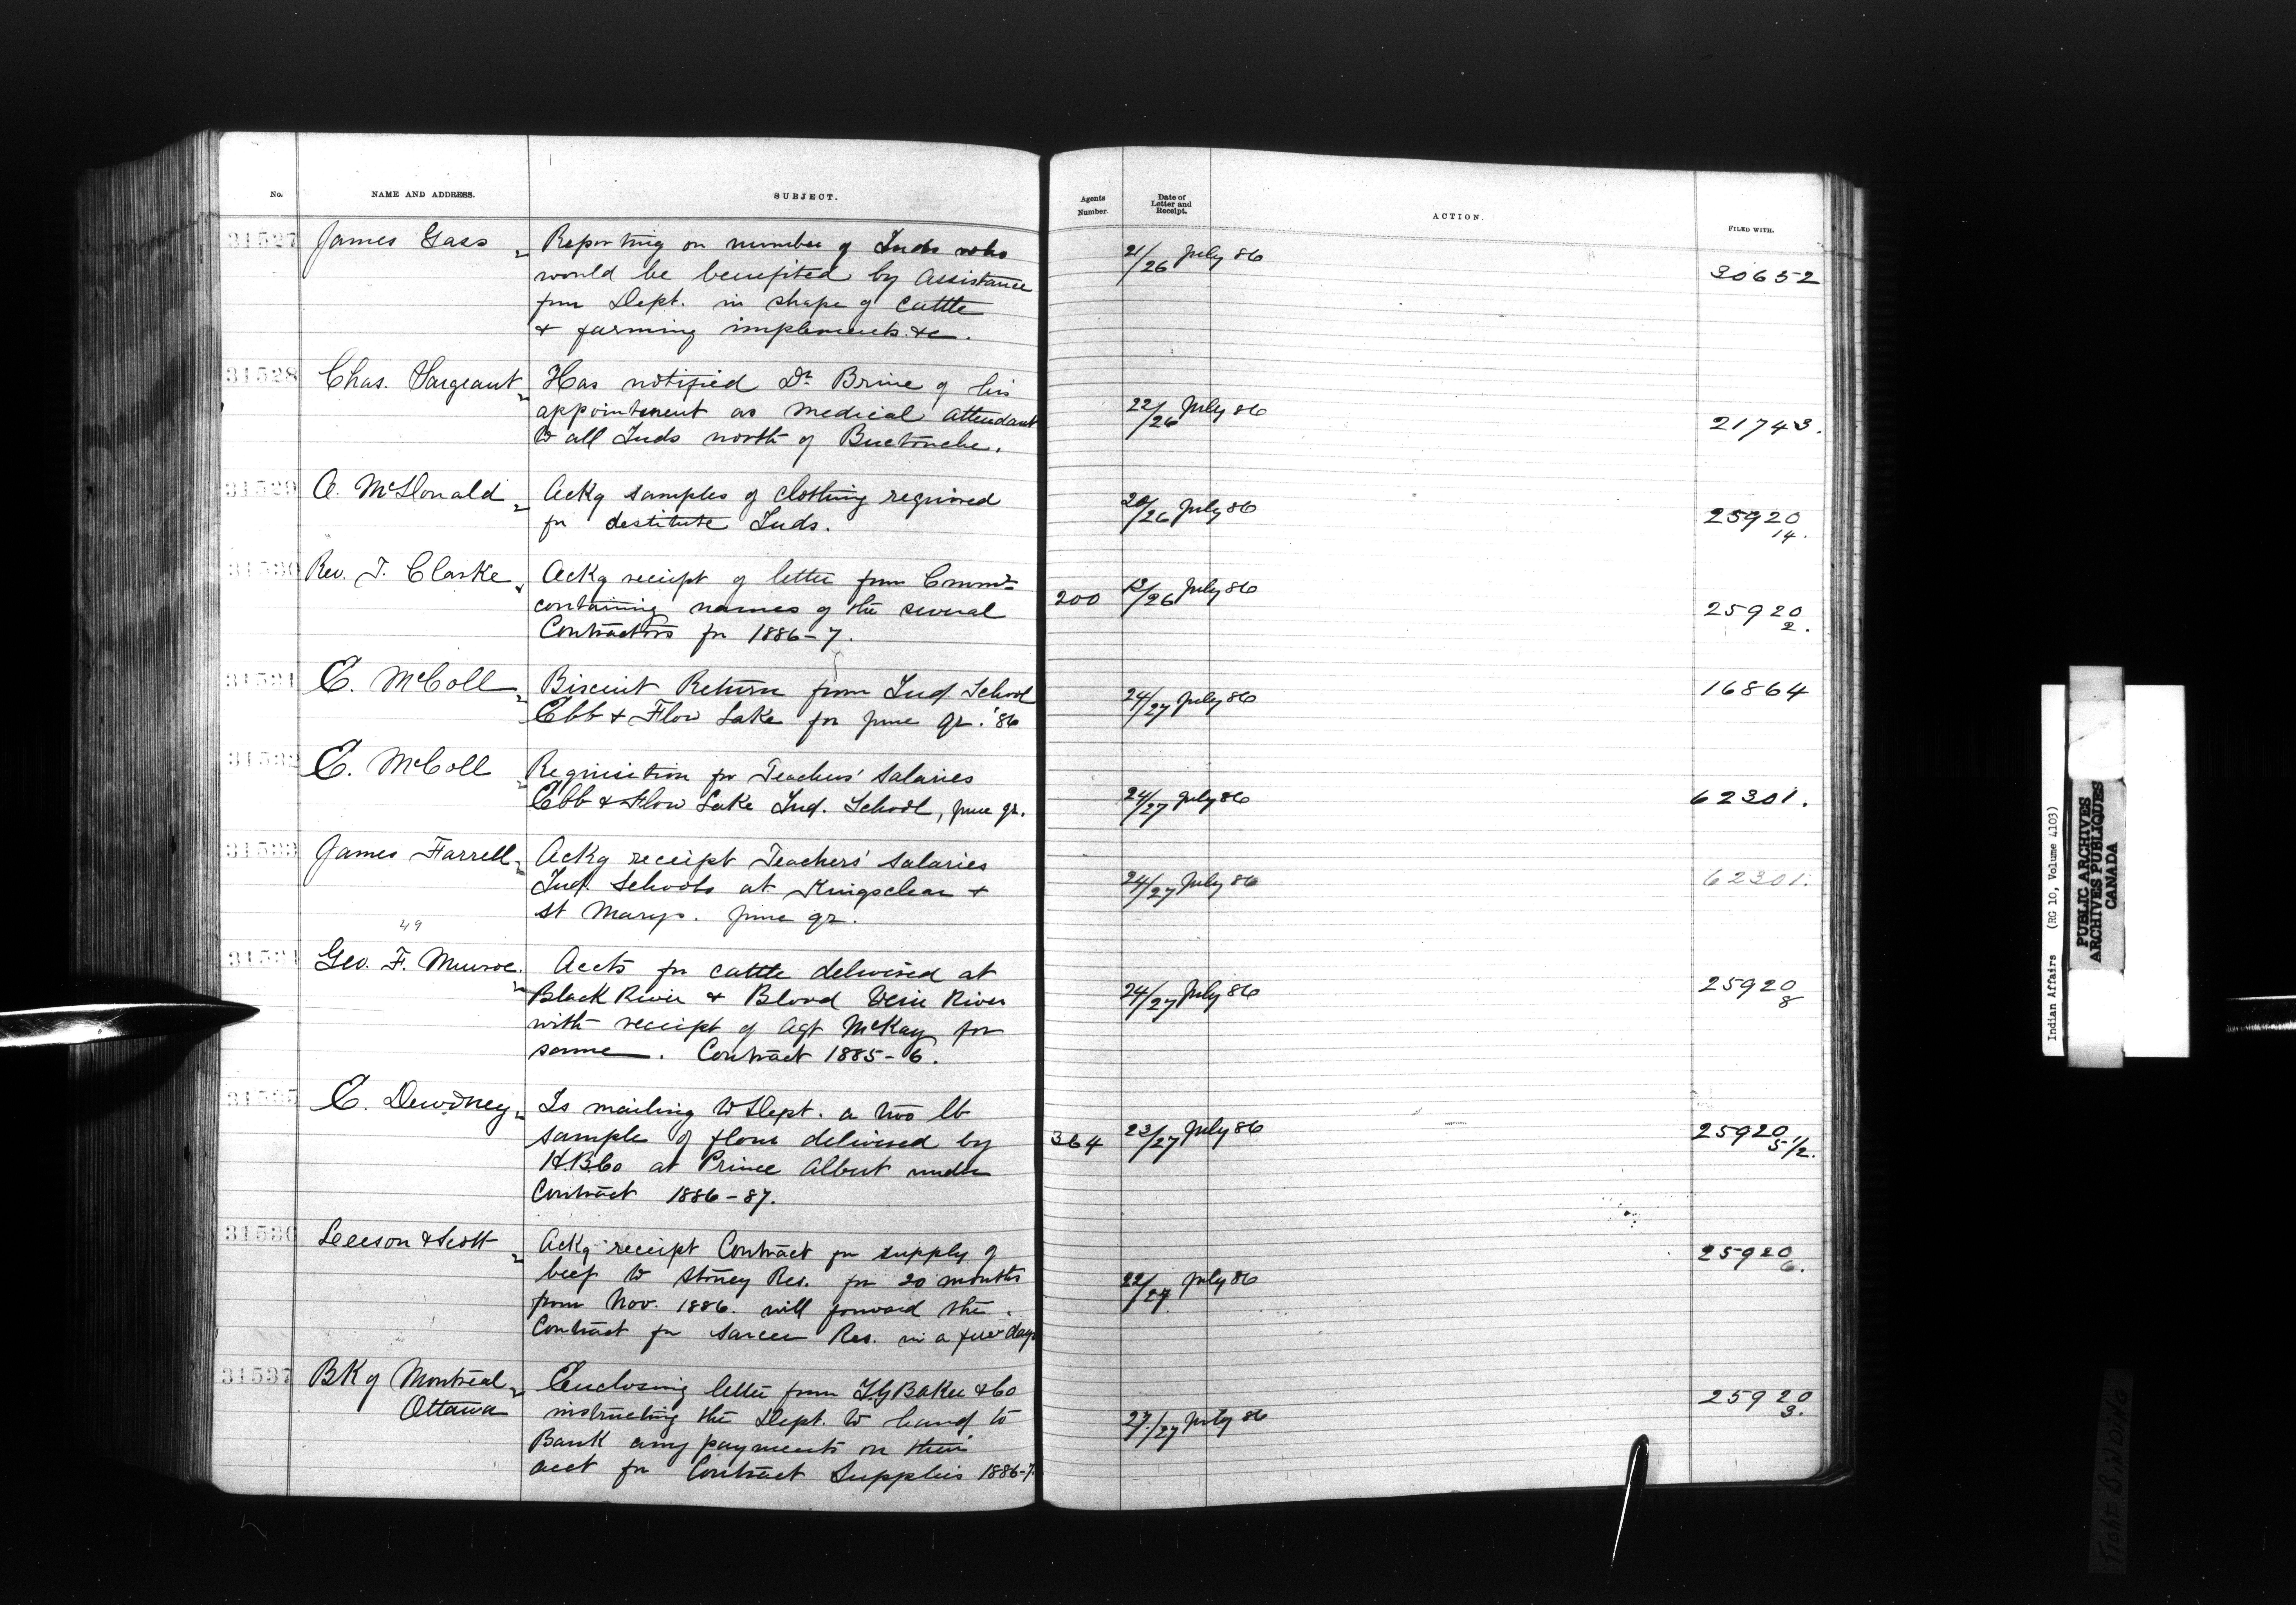 No. NAME AND ADDRESS. SUBJECT. Agents Number. Date of Letter and Receipt. ACTION. FILED WITH.
31527 James Gass Reporting on number of Inds who 21/26 July 86 30652
would be benefited by assistance
from Dept. in shape of cattle
& farming implements &c.
31528 Chas. Sargeant Has notified Dr. Brine of his 22/26 July 86 21743.
appointment as medical attendant
to all Inds north of Buctouche.
31529 A. McDonald Ackg samples of clothing required 20/26 July 86 25920 14.
for destitute Inds.
31530 Rev. J. Clarke Ackg receipt of letter from Commr 200 13/26 July 86 25920 2.
containing names of the several
Contractors for 1886-7.
31531 E. McColl Biscuit Return from Ind. School 24/27 July 86 16864
Ebb & Flow Lake for June qr. '86
31532 E. McColl Requisition for Teachers' Salaries 24/27 July 86 62301.
Ebb & Flow Lake Ind. School, June qr.
31533 James Farrell Ackg receipt Teachers' Salaries 24/27 July 86 62301.
Ind. Schools at Kingsclear &
St Marys. June qr.
49
31534 Geo. F. Munroe. Accts for cattle delivered at 24/27 July 86 25920 8
Black River & Blood Vein River
with receipt of Agt McKay for
same. Contract 1885-6.
31535 E. Dewdney Is mailing to Dept. a two lb 364 23/27 July 86 25920 5 1/2.
sample of flour delivered by
H.B.Co at Prince Albert under
Contract 1886-87.
31536 Leeson & Scott Ackg receipt Contract for supply of 22/27 July 86 25920 6.
beef to Stoney Res. for 20 months
from Nov. 1886. will forward the
Contract for Sarcee Res. in a few days
31537 Bk of Montreal Enclosing letter from I.G Baker & Co 27/27 July 86 25920 3.
Ottawa instructing the Dept. to hand to
Bank any payments on their
acct for Contract Supplies 1886-7.
Indian Affairs (RG 10, Volume 4103)
PUBLIC ARCHIVES
ARCHIVES PUBLIQUES
CANADA
TIGHT BINDING